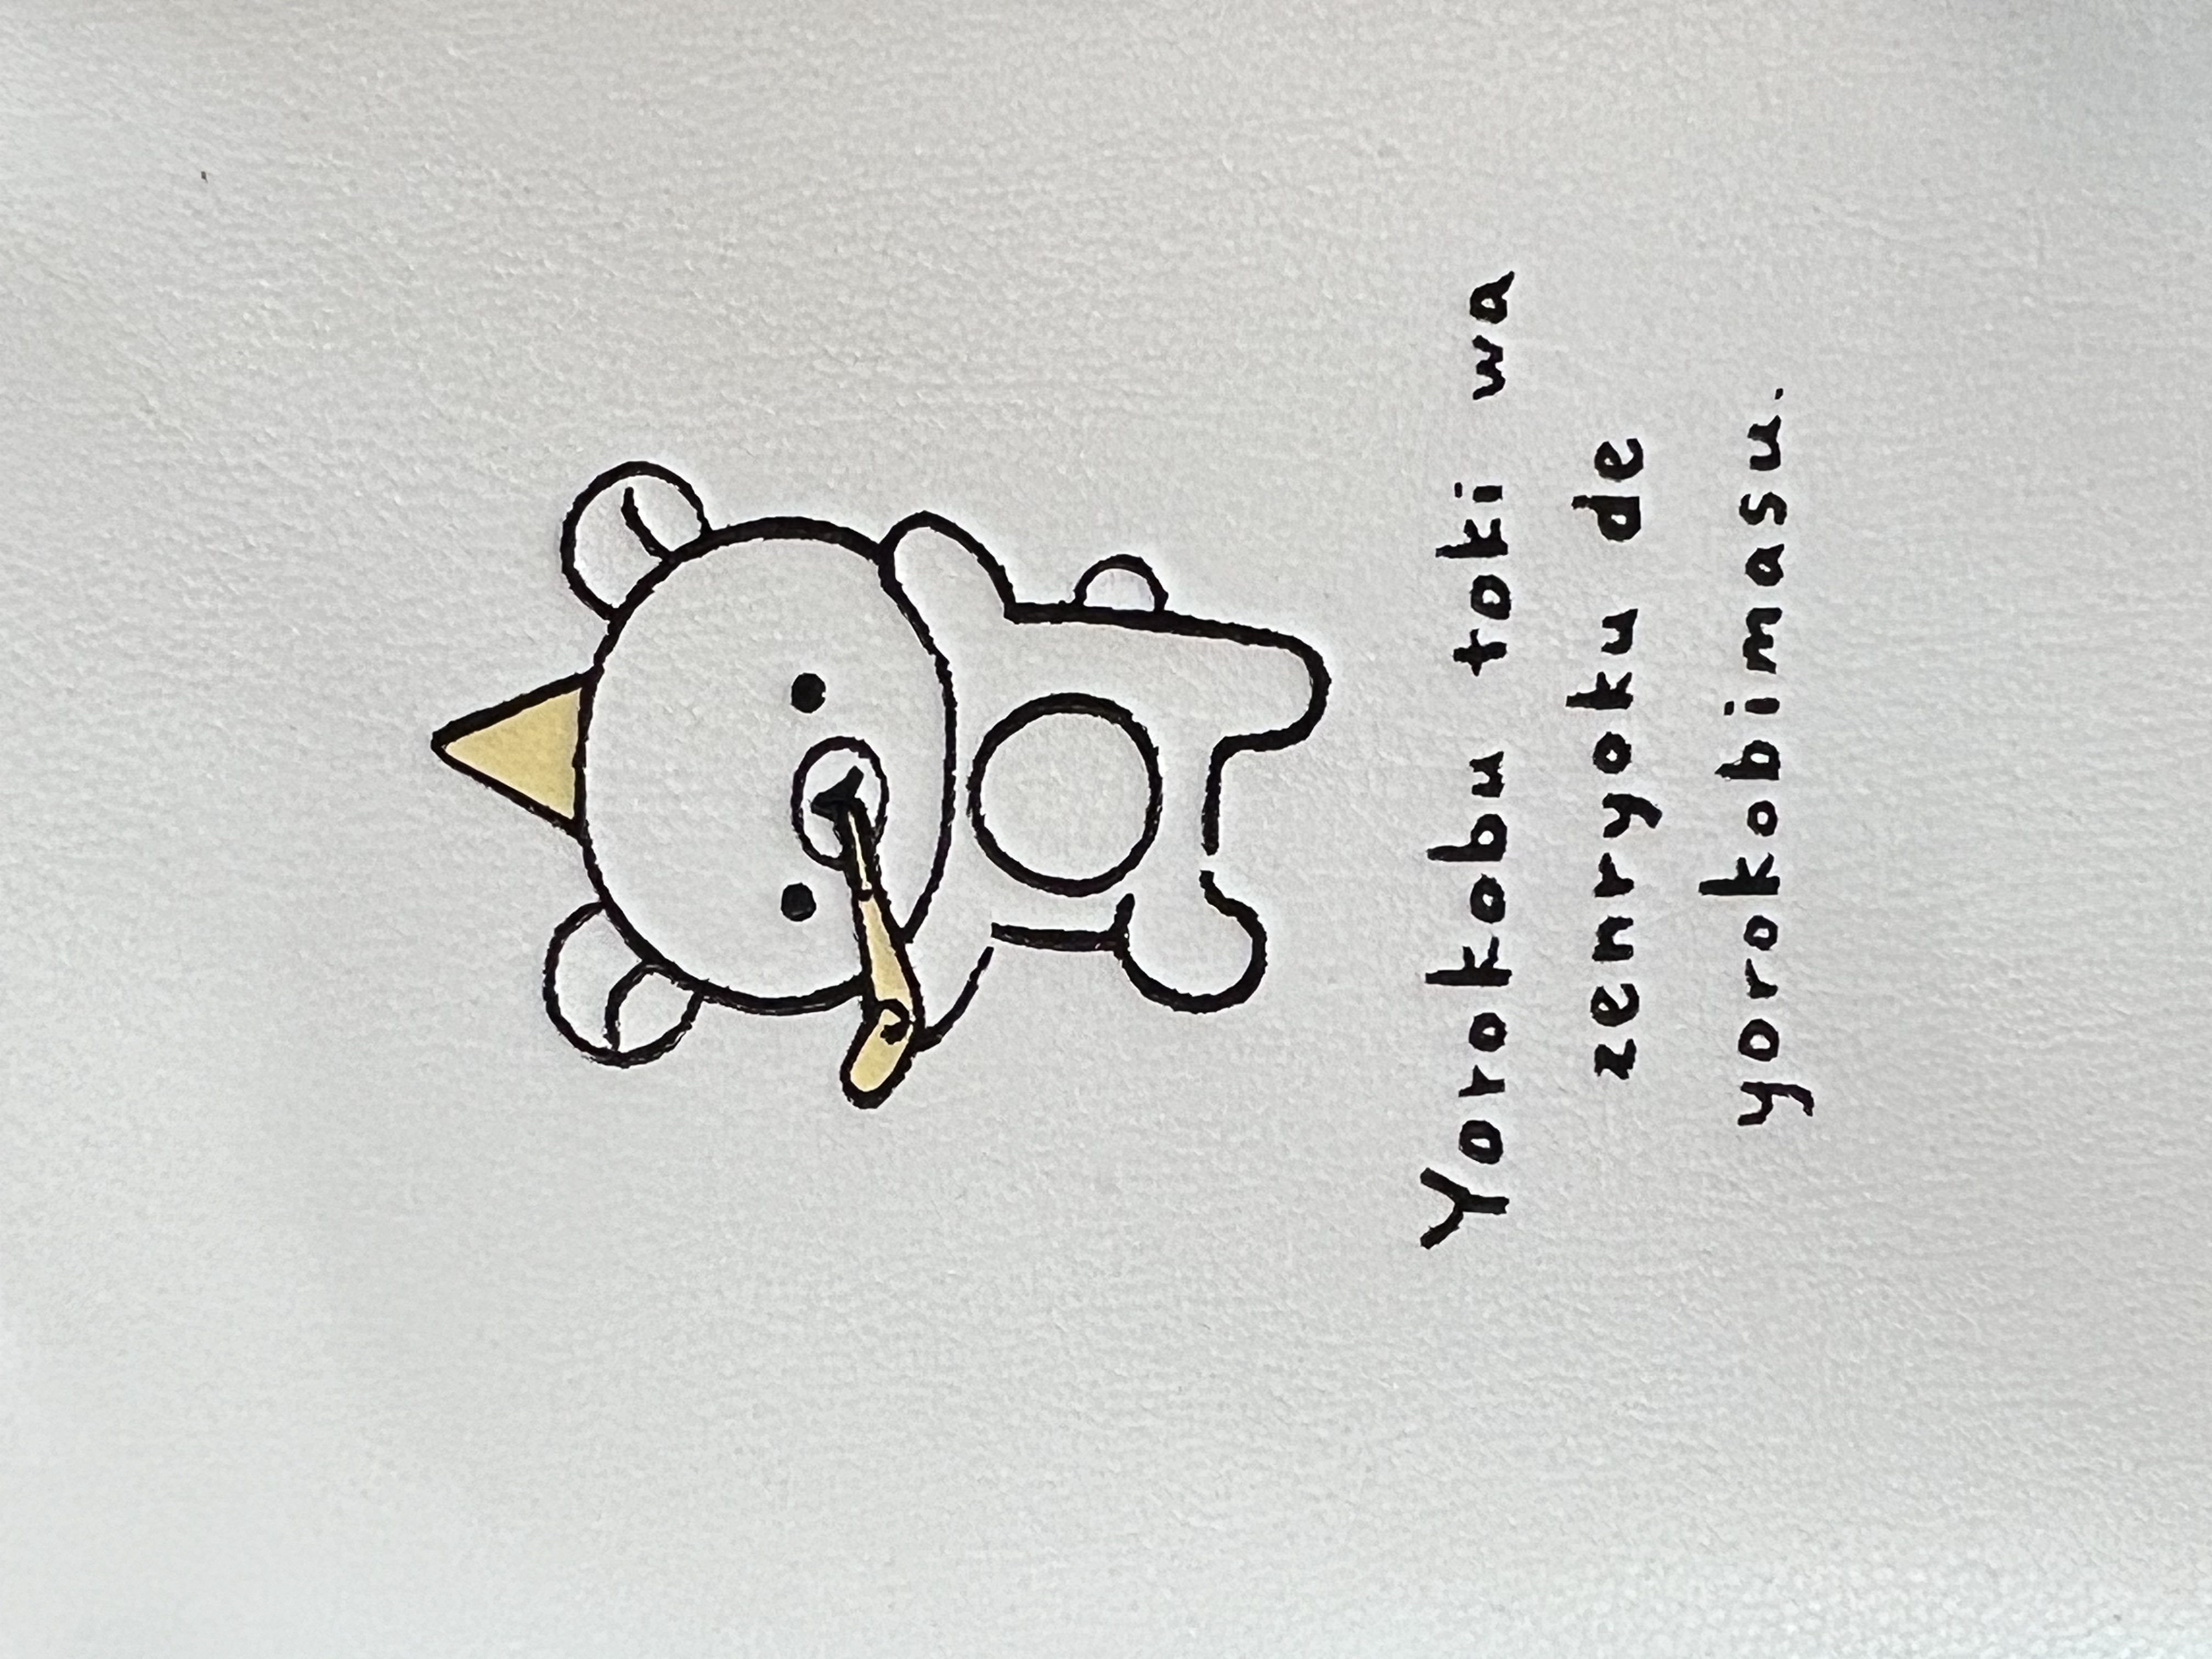 Yorokobu toki wa
zenryoku de
yorokobimasu.